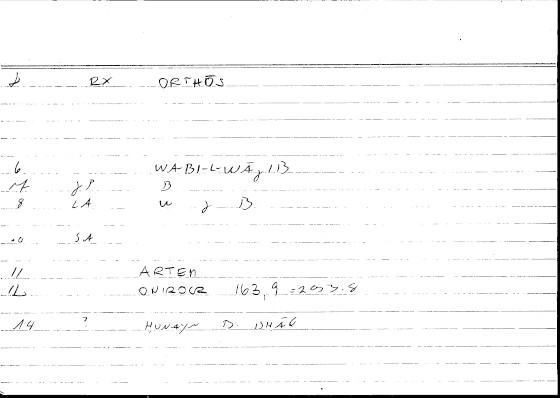 RX ORTHŌS
6 WA-BI-L-WĀǧIB
B
8 LA W ǧ B
10 SA
11 ARTEM
12 ONIROCR 163,9 = 293.8
14 ? ḤUNAYN B. ISḤĀQ